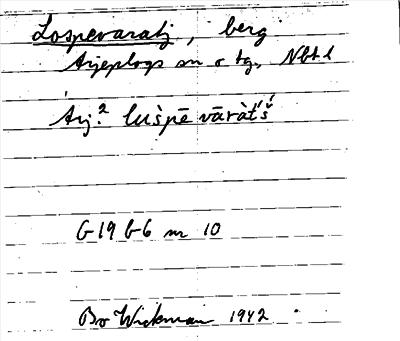 Lospevaratj, berg
Arjeplogs sn o tg, Nbtl
Arj.² lus̀pē vāràt́š́
G 19 b-6 nr 10
Bo Wickman 1942